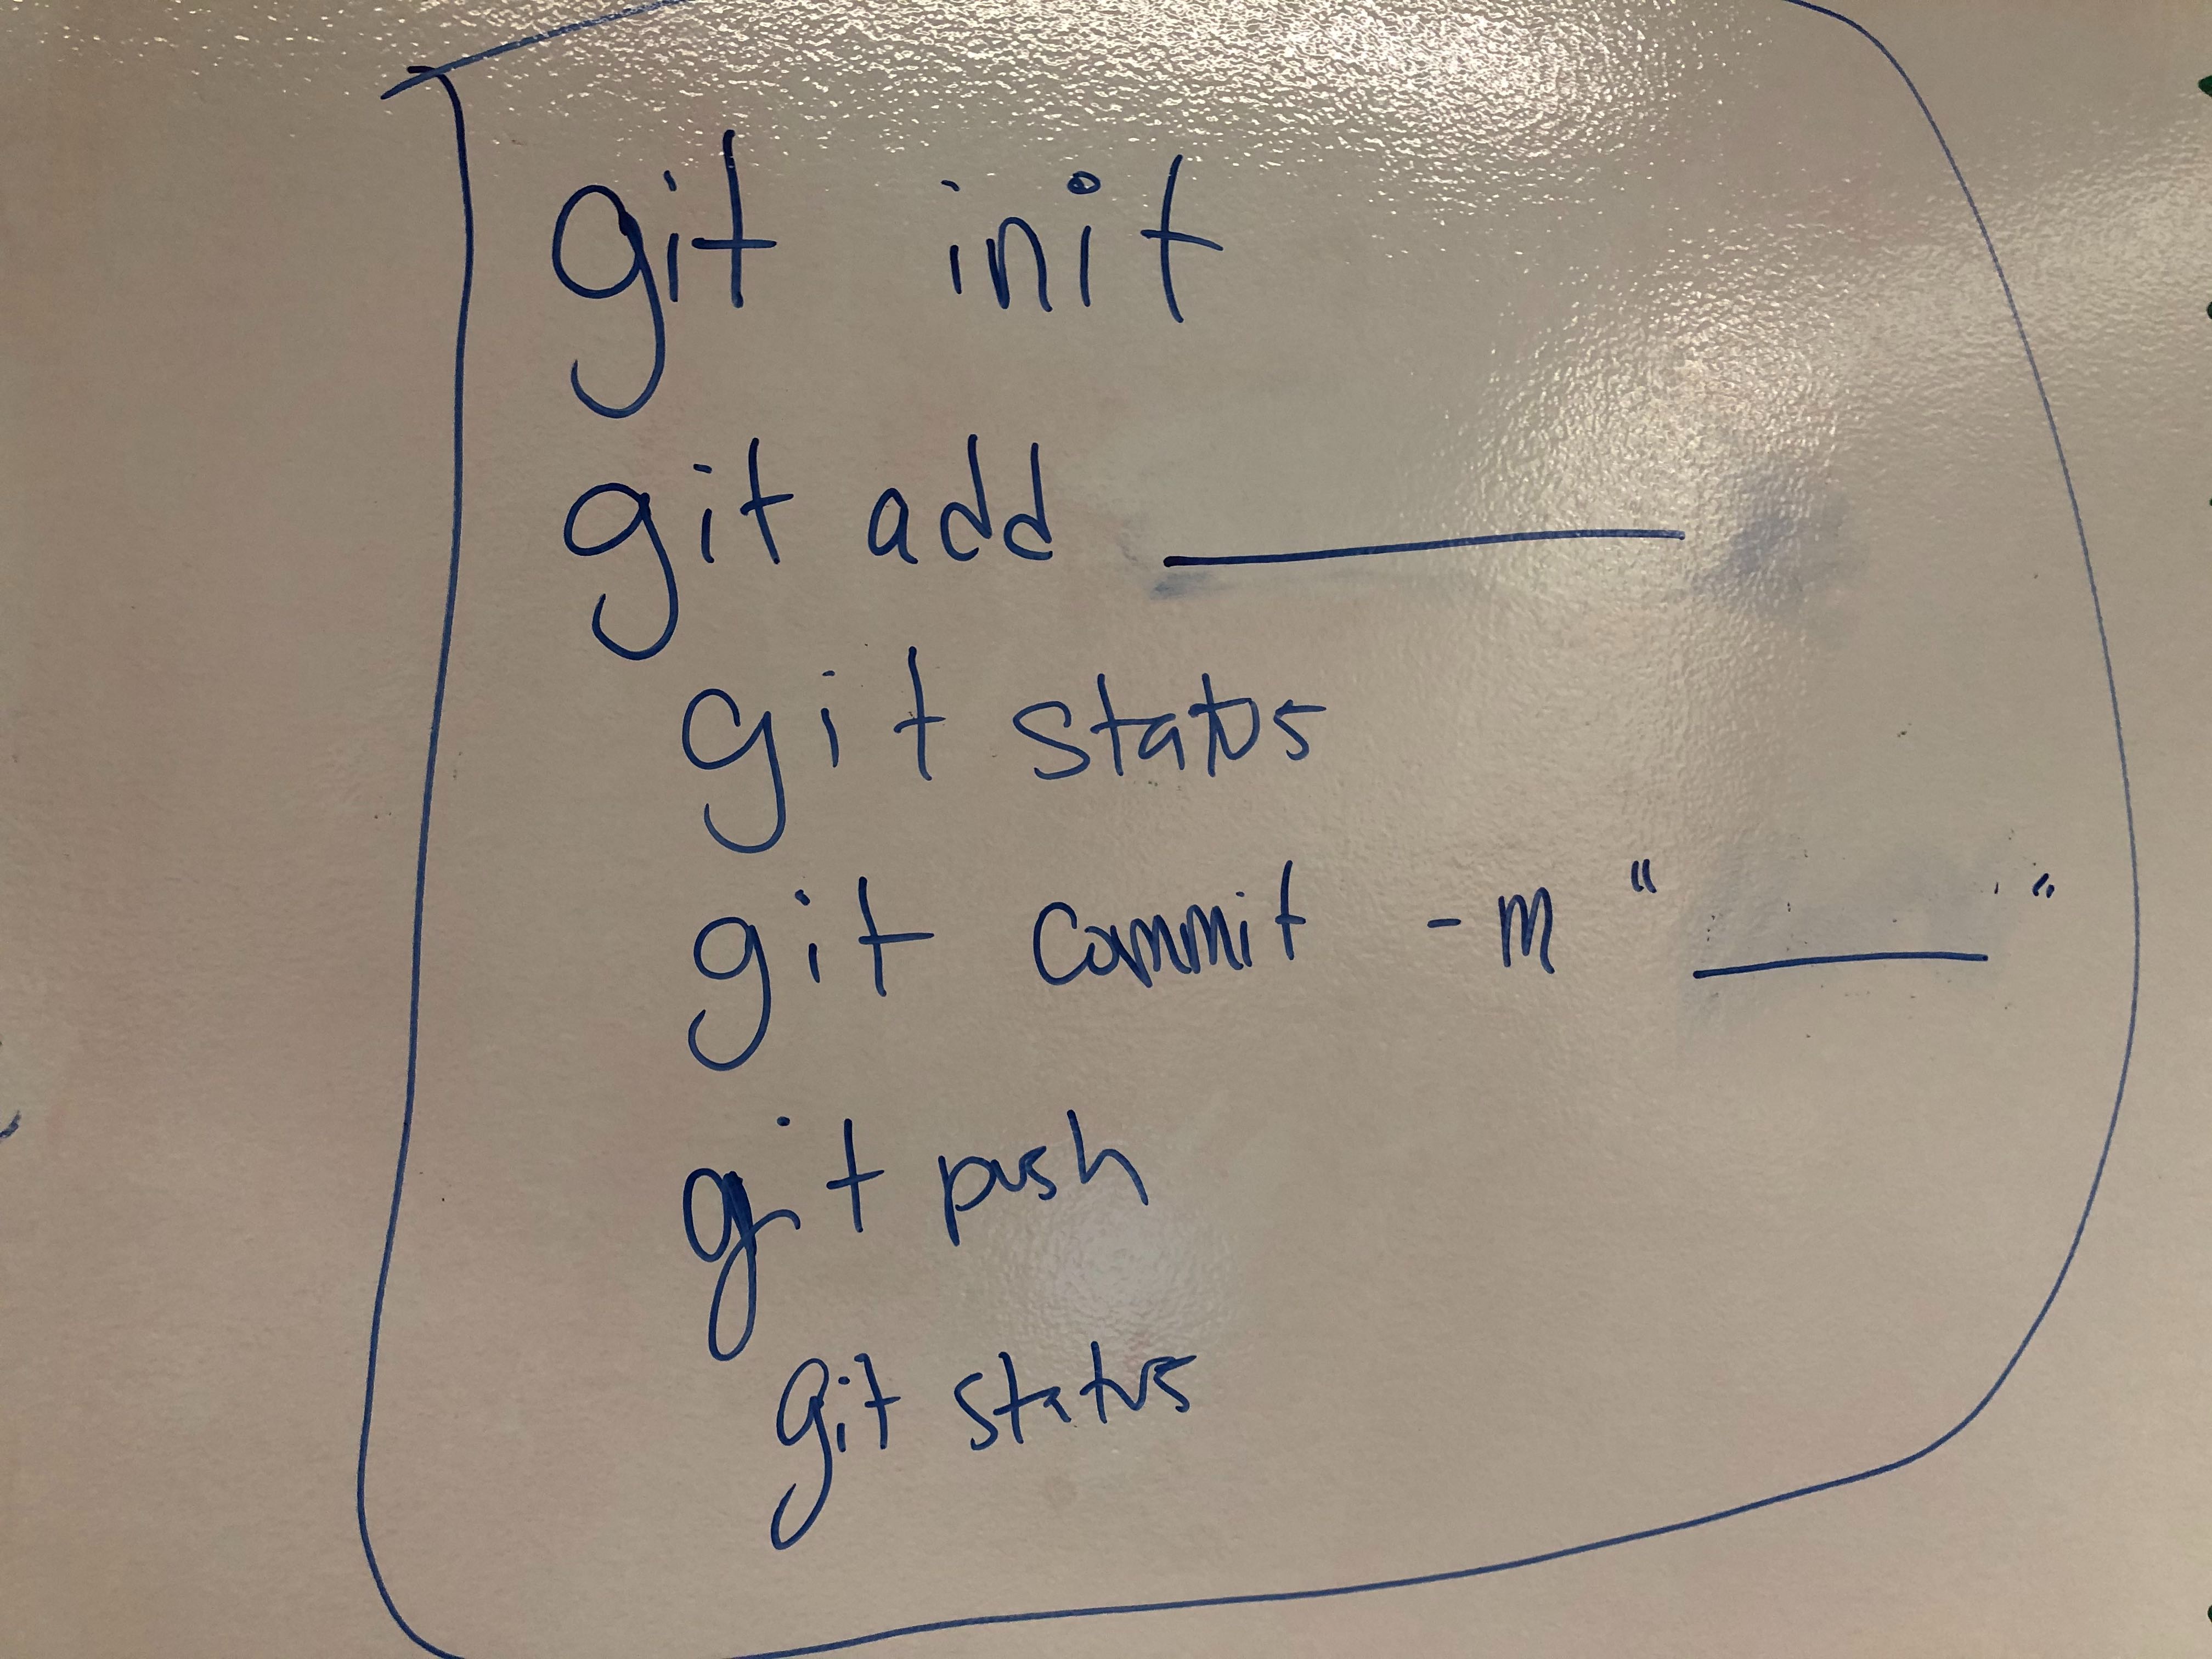 git init
git add ________
git status
git commit -m "______"
git push
git status